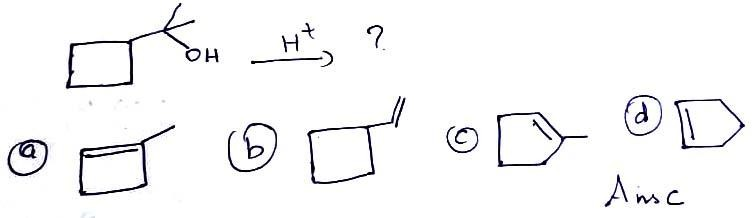 OH H+ ?
a b c d
Ans c